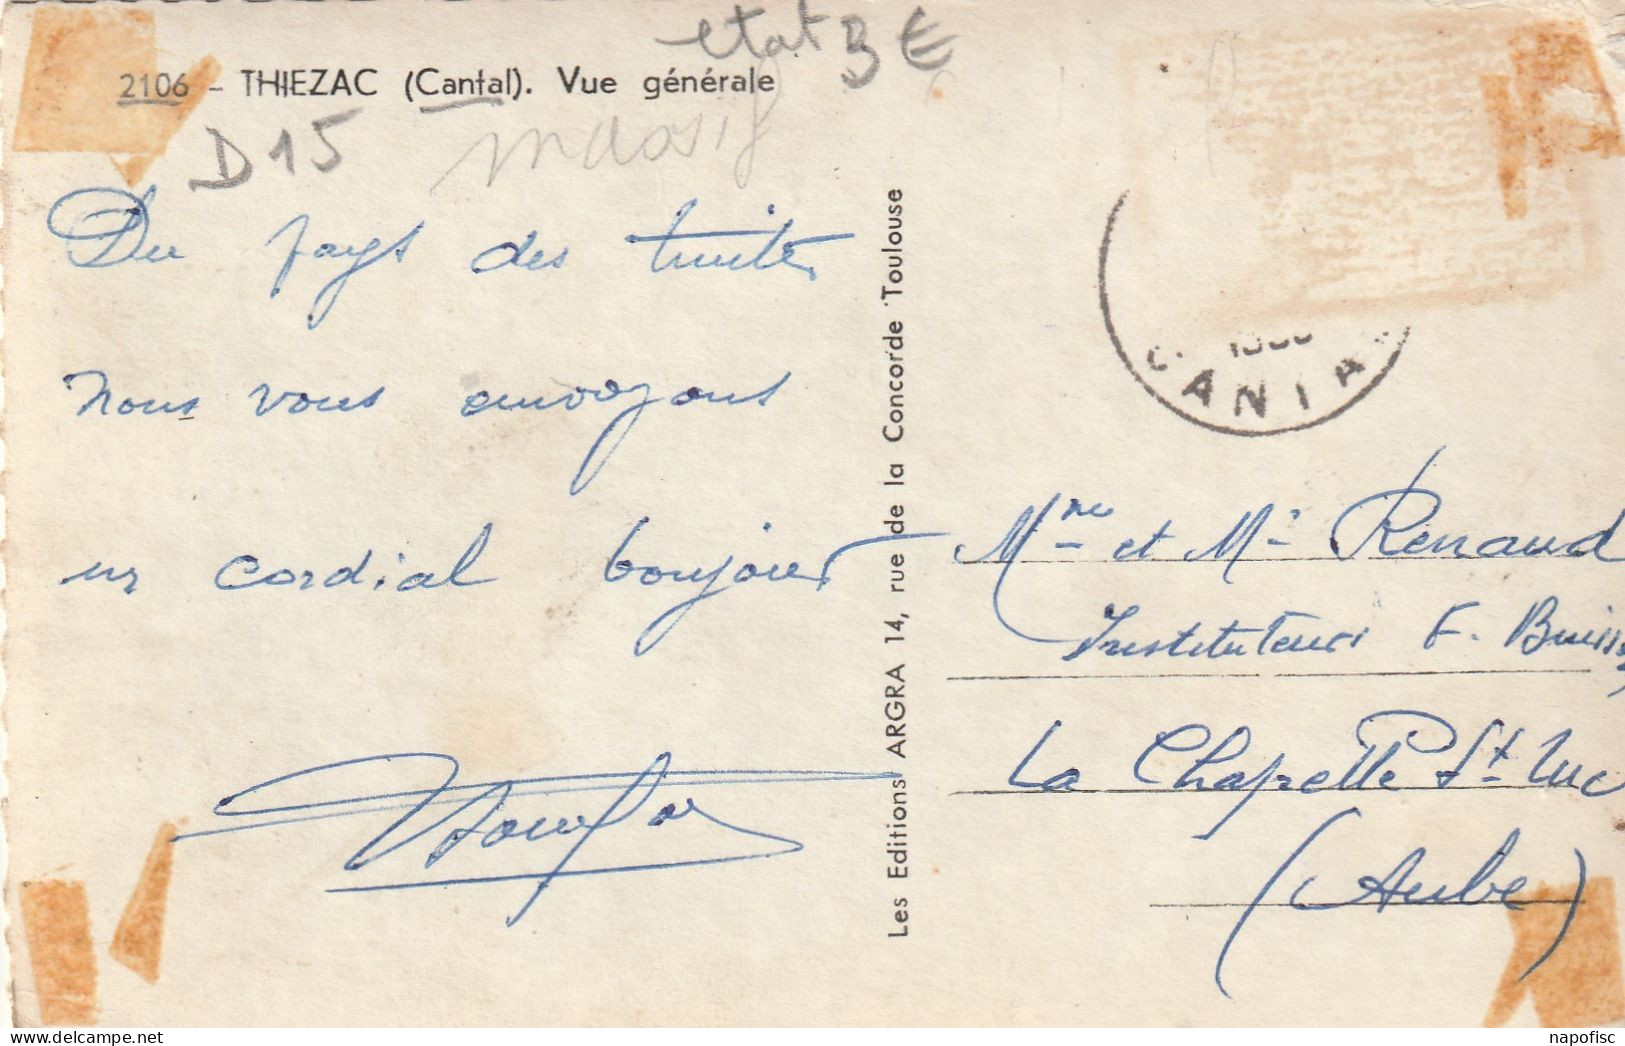 etat 3 €
2106 - THIEZAC (Cantal). Vue générale
D15 massif
Du pays des truites
nous vous envoyons
un cordial boujour
Les Editions ARGRA 14, rue de la Concorde Toulouse
CANTAL
Mme et Mr Renaud
Instituteurs F. Buisson
La Chapelle St Luc
(Aube)
napofisc